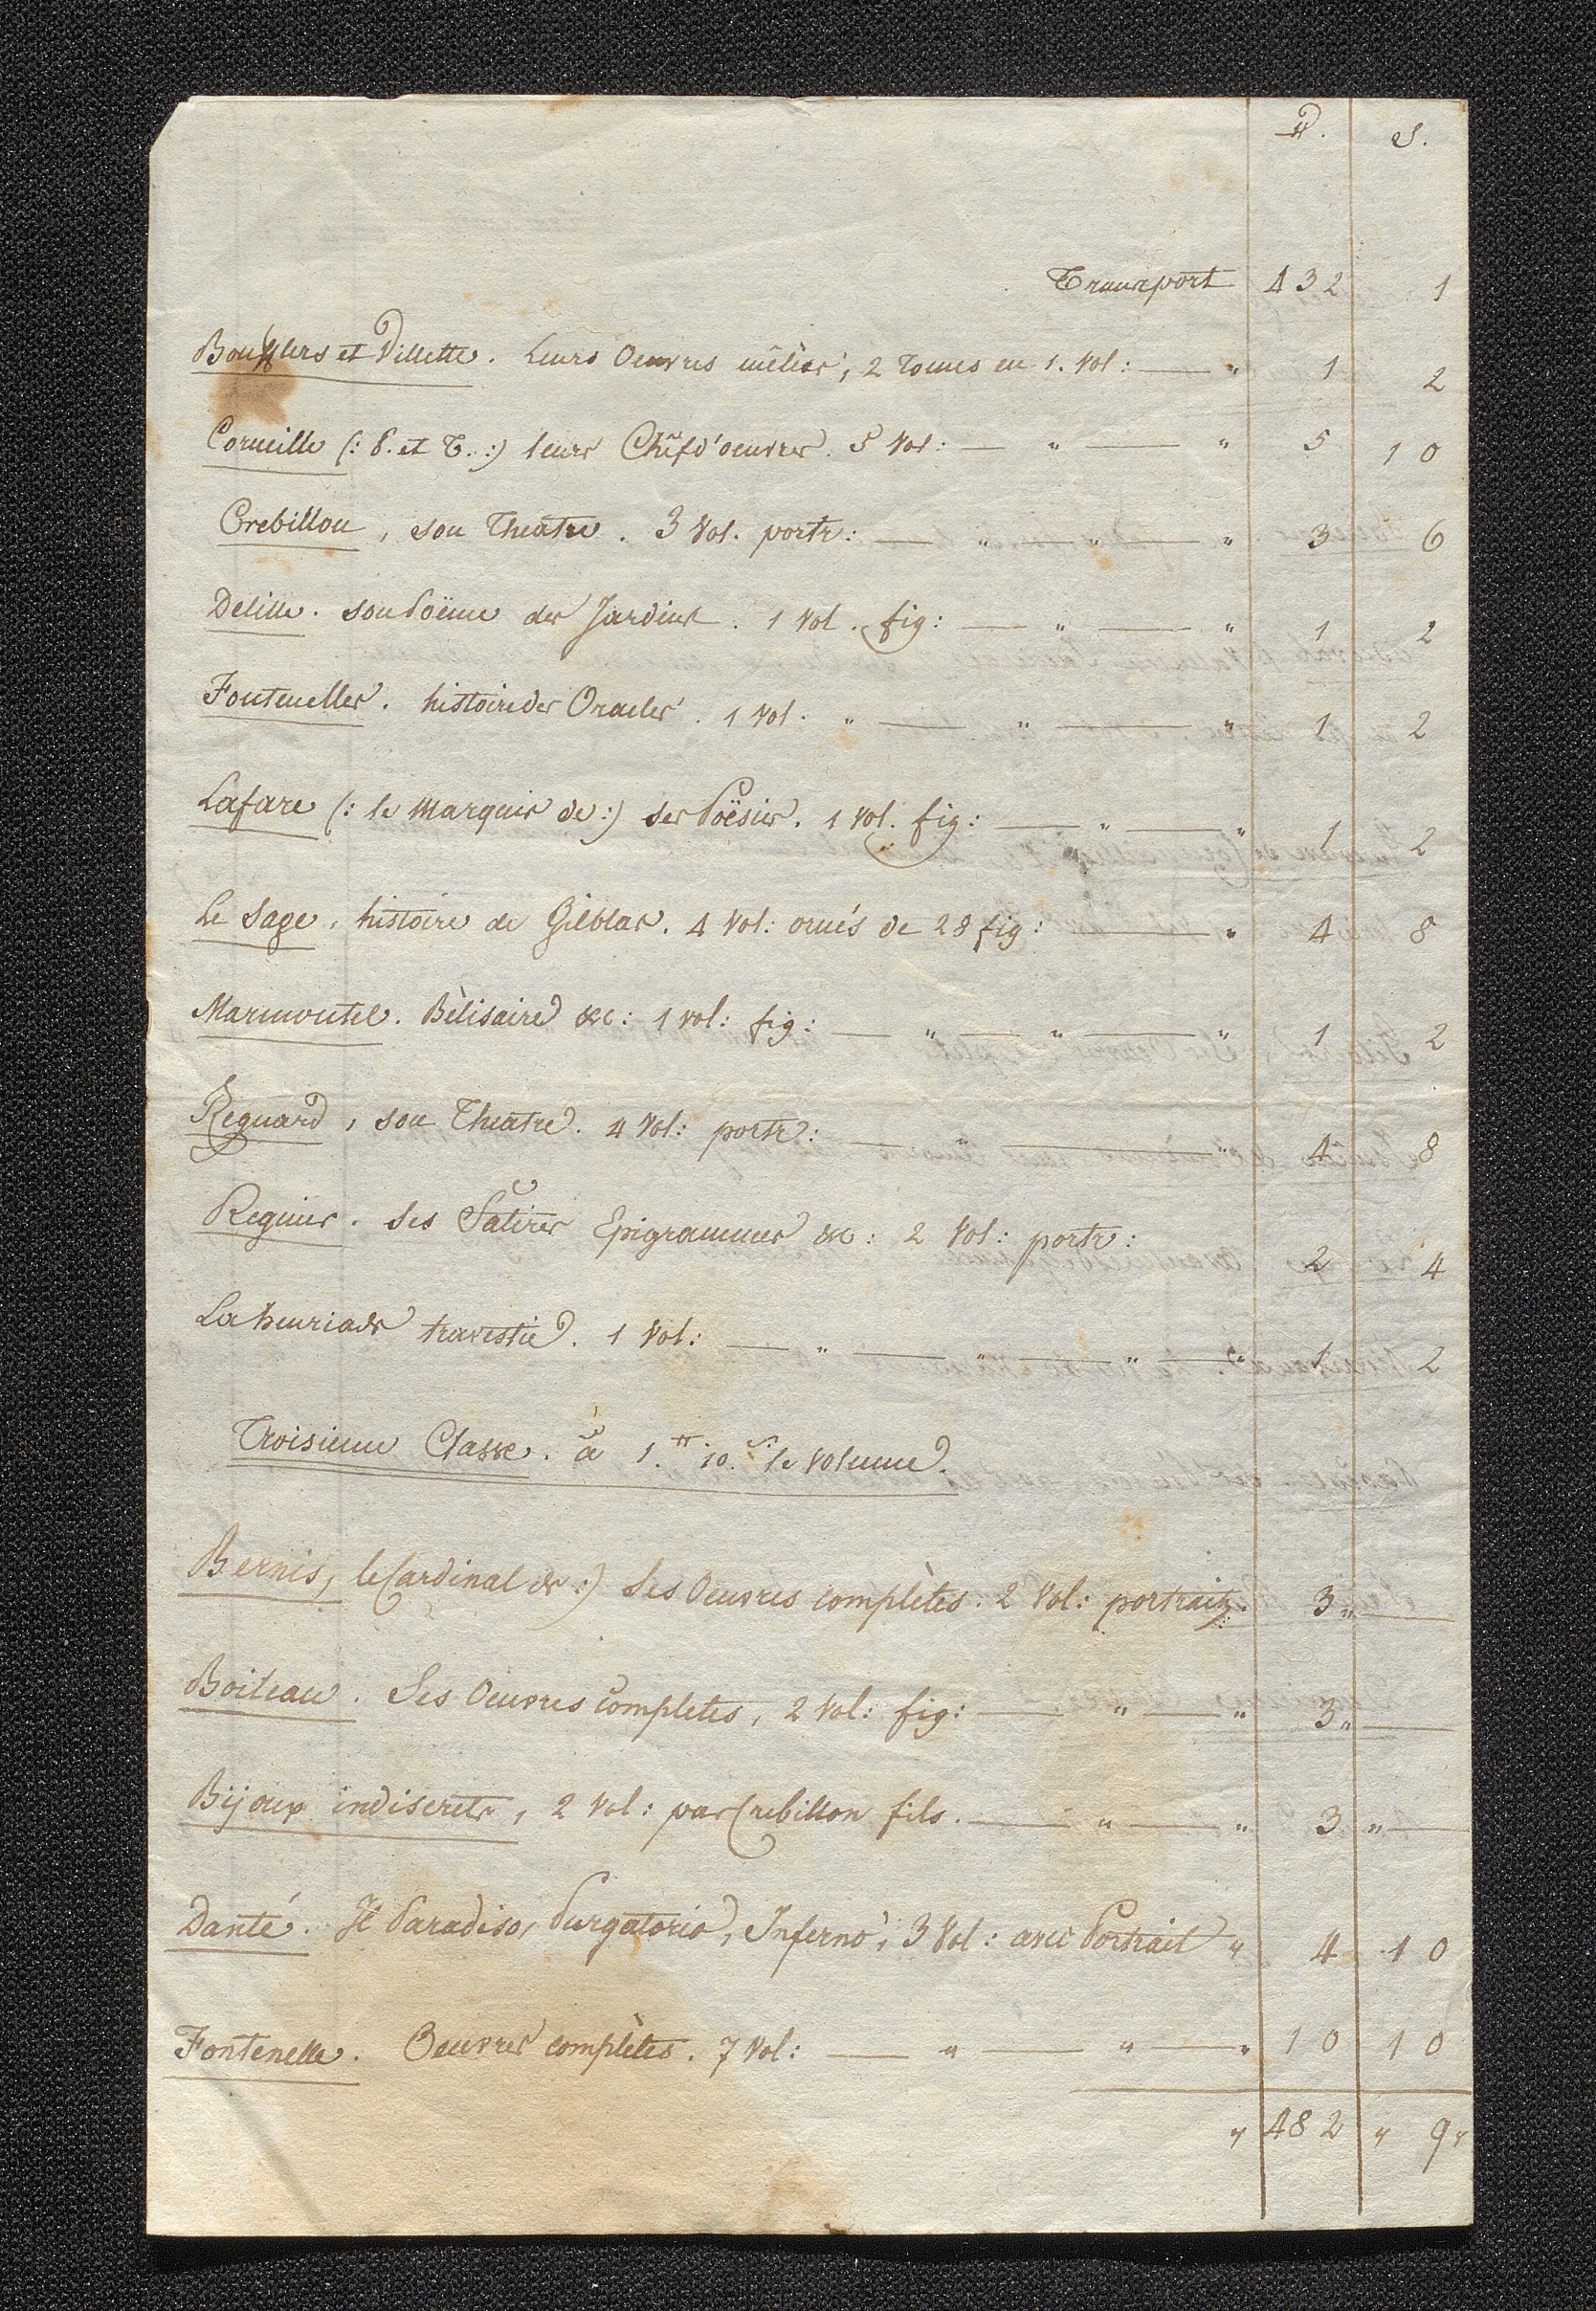 ₶. S.
Transport 432 1
Boufflers et Villette. Leurs Oeuvres mêlées, 2 Tomes en 1. Vol: — " 1 2
Corneille (: P. et T. :) leurs Chefd'oeuvres. 5 Vol: — " — " 5 10
Crebillon, son Theatre. 3 Vol. portr: — " — " — " 3 6
Delille. son Poëme des Jardins. 1 Vol. fig: — " — " 1 2
Fontenelles. histoire des Oracles. 1 Vol. " — " — " 1 2
Lafare (: le Marquis de :) ses Poësies. 1 Vol. fig: — " — " 1 2
Le Sage, histoire de Gilblas. 4 Vol: ornés de 28 fig: — " 4 8
Marmontel. Bèlisaire &c: 1 vol: fig: — " — " — " 1 2
Regnard, son Theatre. 4 Vol: portr: — " — " 4 8
Regnier. Ses Satires Epigrammes &c: 2 Vol: portr: 2 4
La henriade travestie. 1 Vol: — " — " — " — " 1 2
Troisieme Classe. à 1.₶ 10.S. le Volume.
Bernis, le Cardinal de :) Ses Oeuvres complètes. 2 Vol: portraits. 3 " —
Boileau. Ses Oeuvres completes, 2 Vol: fig: — " — " 3 " —
Bijoux indiscrets, 2 Vol: par Crebillon fils. — " — " 3 " —
Danté. Il Paradiso, Purgatorio, Inferno, 3 Vol: avec Portrait " 4 10
Fontenelle. Oeuvres complètes. 7 Vol: — " — " — " 10 10
" 482 " 9 "